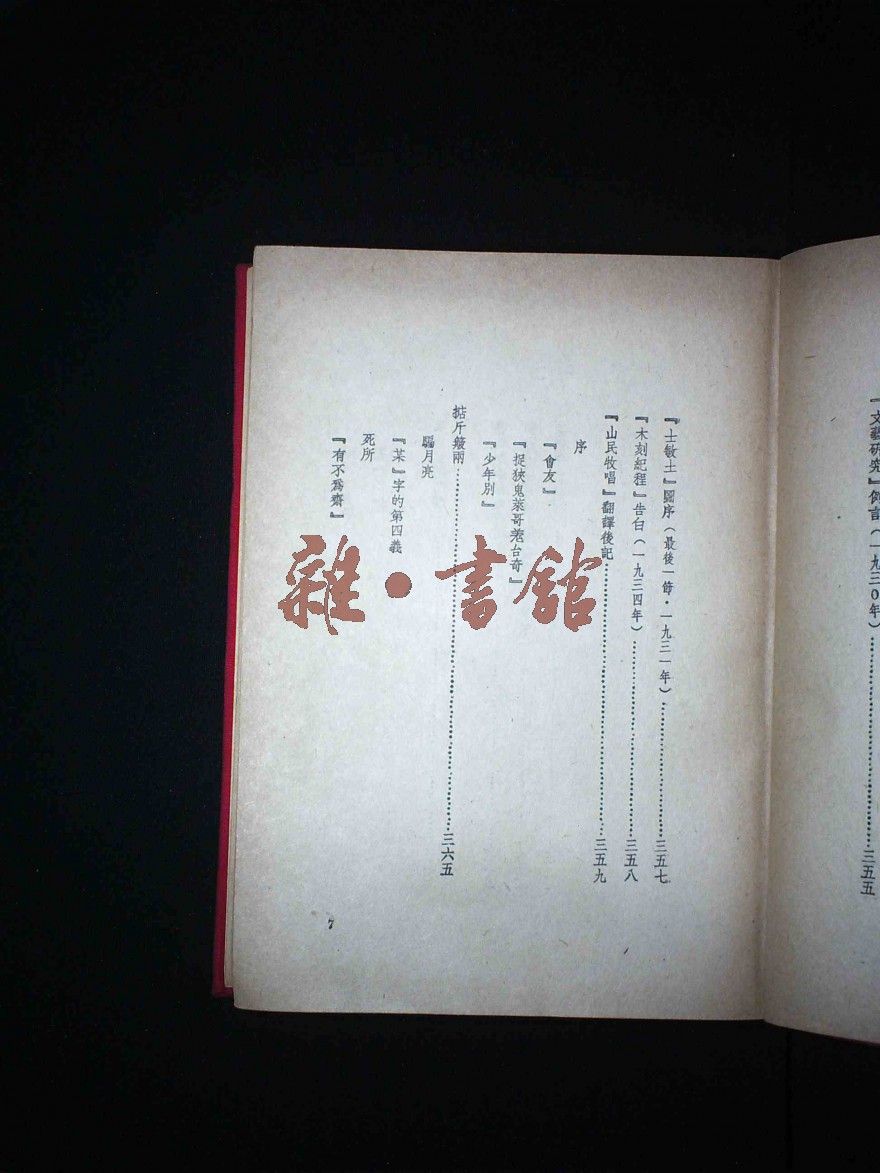 『文藝研究』例言（一九三〇年）……三五五
『士敏土』圖序（最後一節·一九三一年）……三五七
『木刻紀程』告白（一九三四年）……三五八
『山民牧唱』翻譯後記……三五九
序
『會友』
『捉狹鬼萊哥羌台奇』
『少年別』
掂斤簸兩……三六五
騙月亮
『某』字的第四義
死所
『有不爲齋』
7
雜·書館